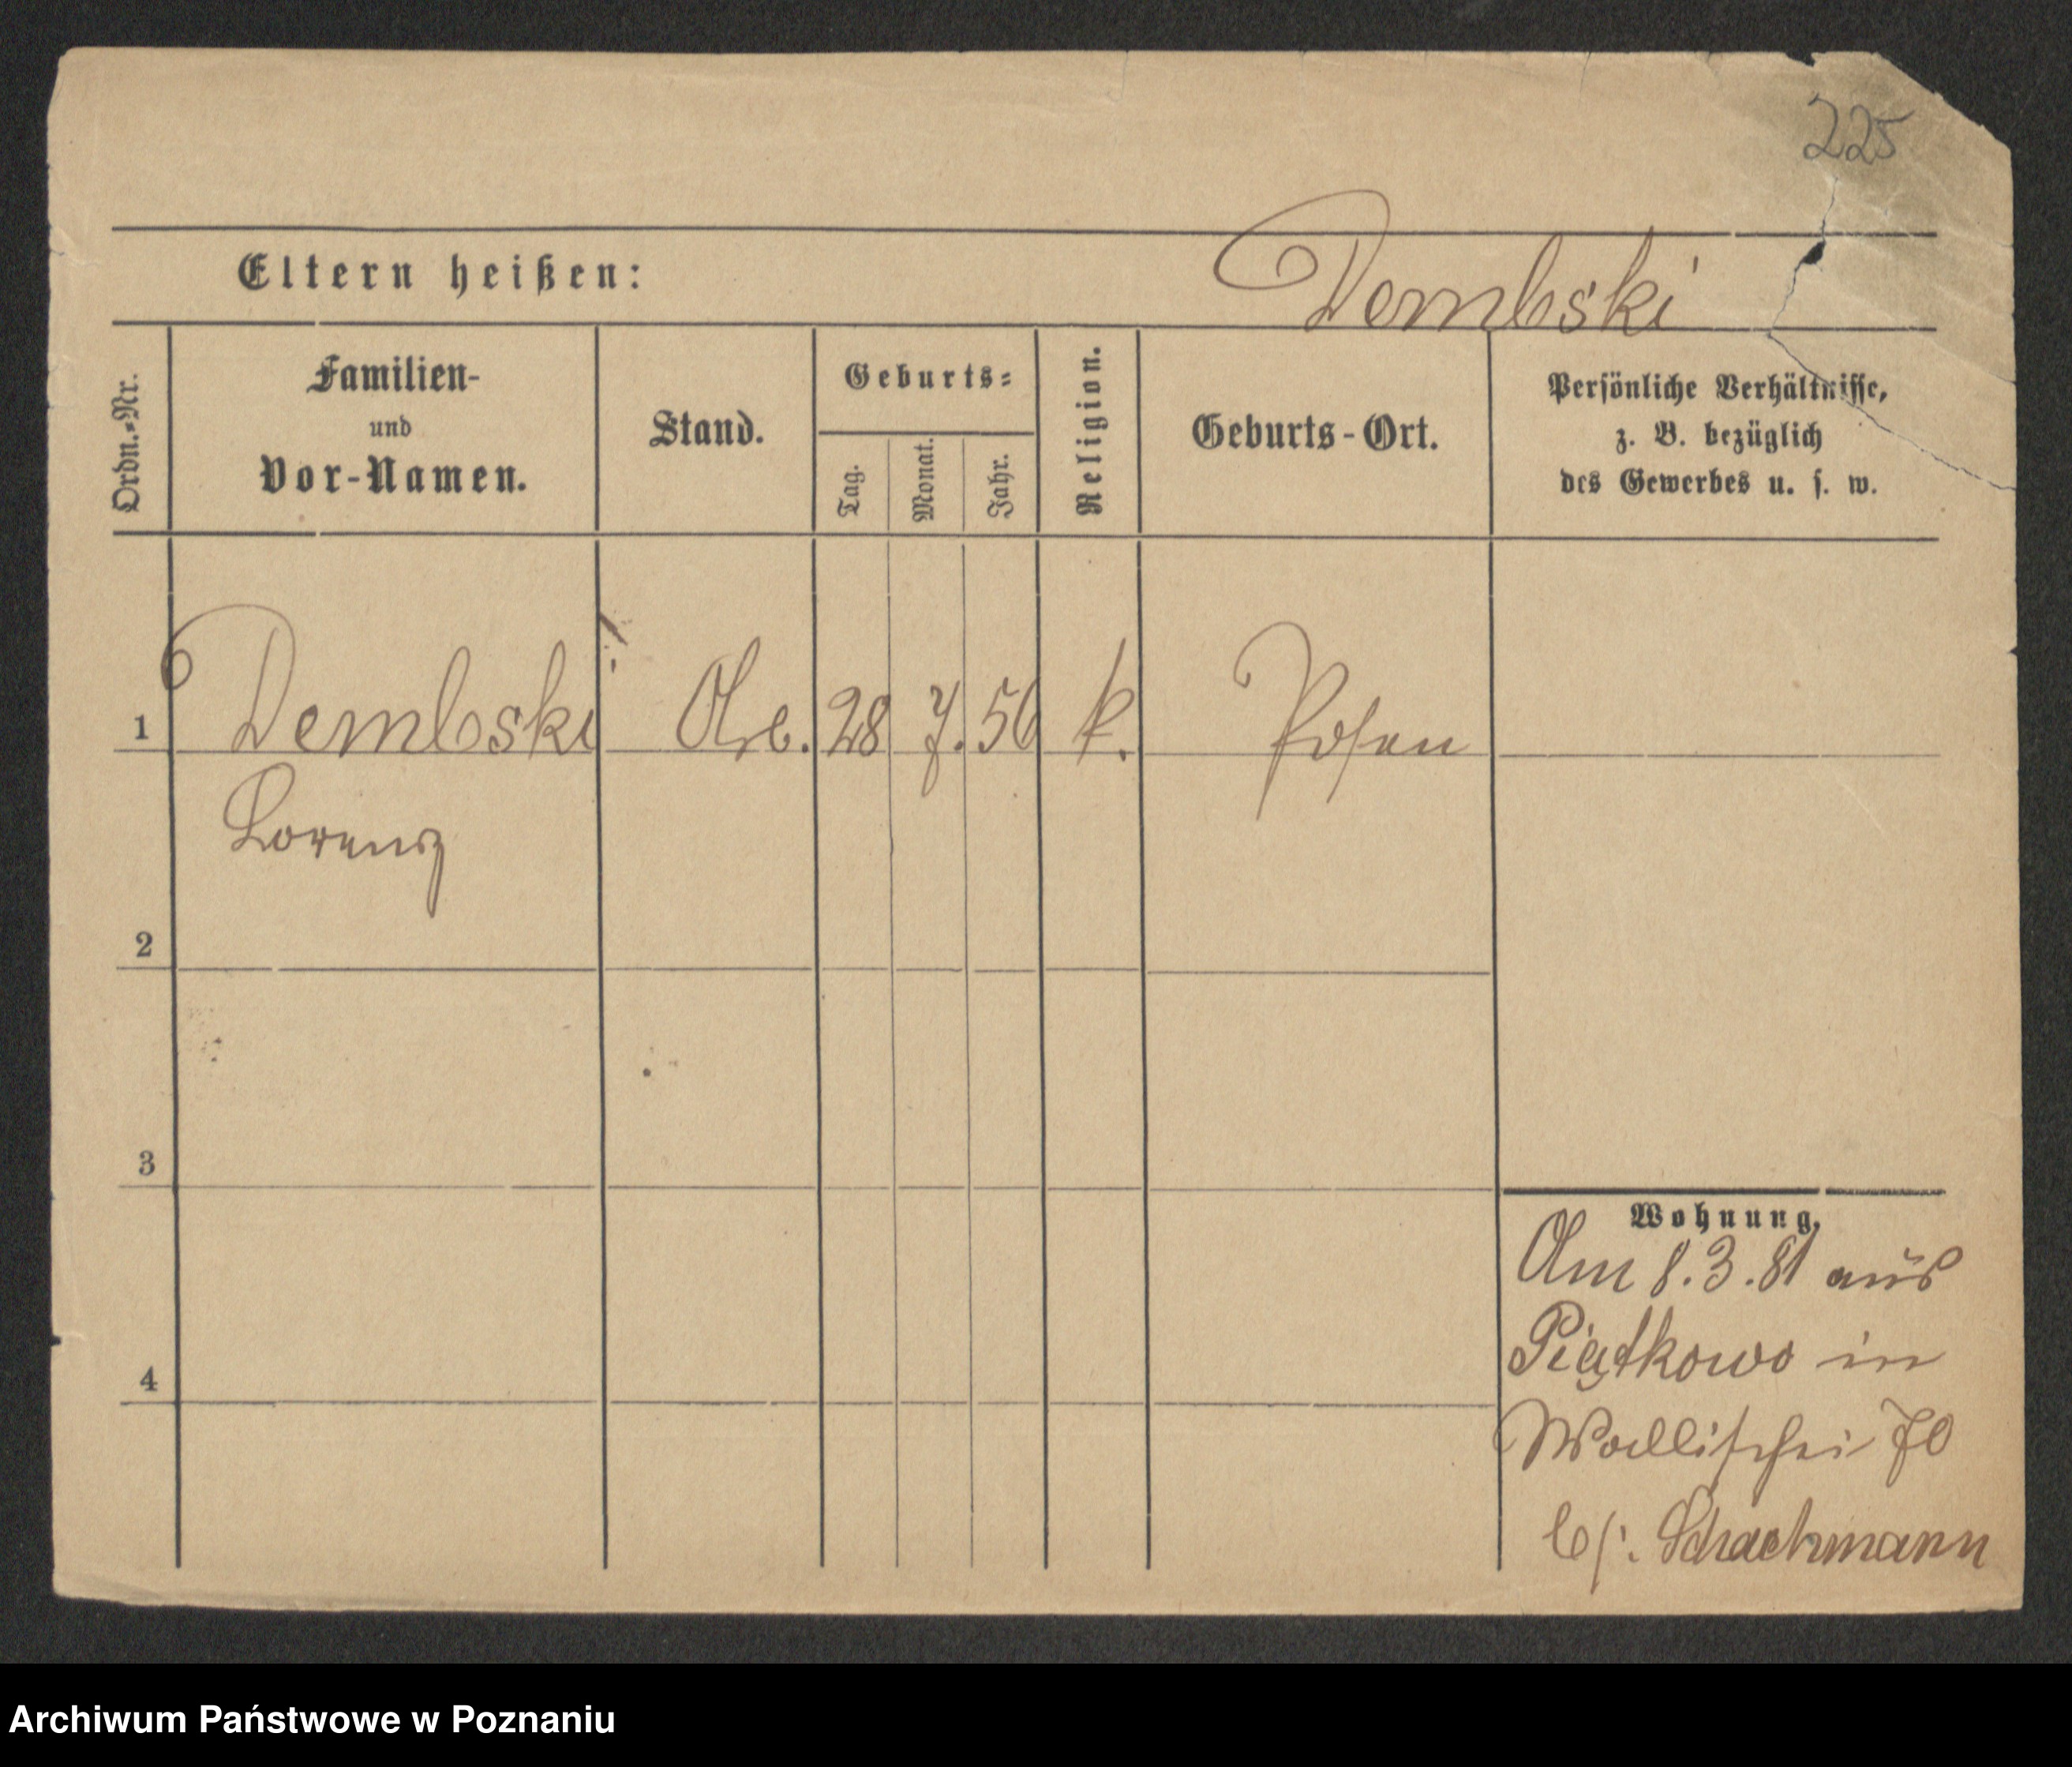 225
Eltern heißen: Dembski
Ordn.-Nr.
Familien-
und
Vor-Namen.
Stand.
Geburts-
Tag.
Monat.
Jahr.
Religion.
Geburts-Ort.
Persönliche Verhältnisse,
z. B. bezüglich
des Gewerbes u. s. w.
1 Dembski Arb. 28 7. 56 k. Posen
Lorenz
2
3
4
Wohnung.
Am 8.3.81 aus
Piątkowo in
Wallischei 70
b/: Schachmann
Archiwum Państwowe w Poznaniu